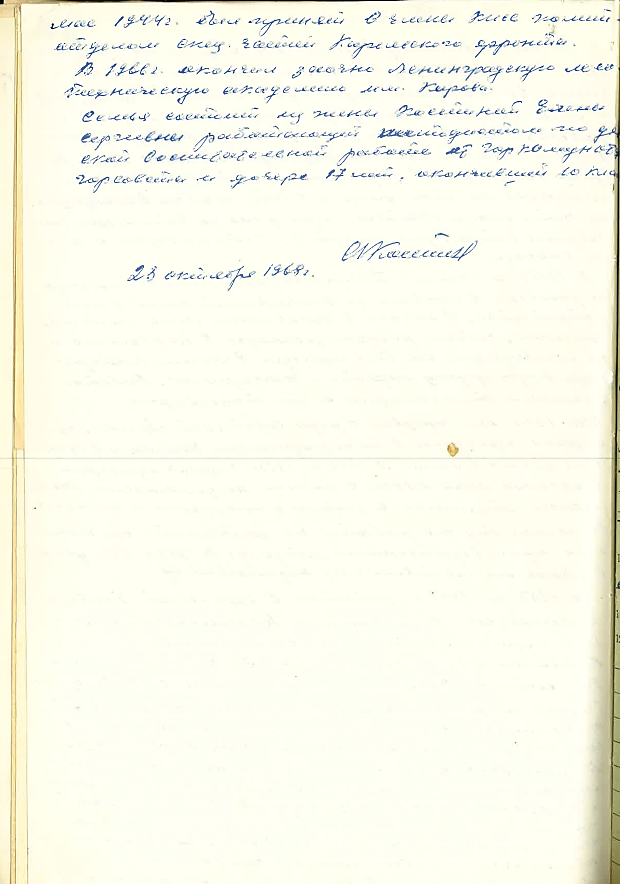 мае 1944г. был принят в члены КПСС полит-
отделом спец. частей Карельского фронта.
В 1966г. окончил заочно Ленинградскую лесо
техническую академию им. Кирова.
Семья состоит из жены Костиной Елены
Сергеевны работающей методистом по де
ской воспитательной работе от горкоммунот
горсовета и дочери 17 лет, окончившей 10 кла
Костин
23 октября 1968г.